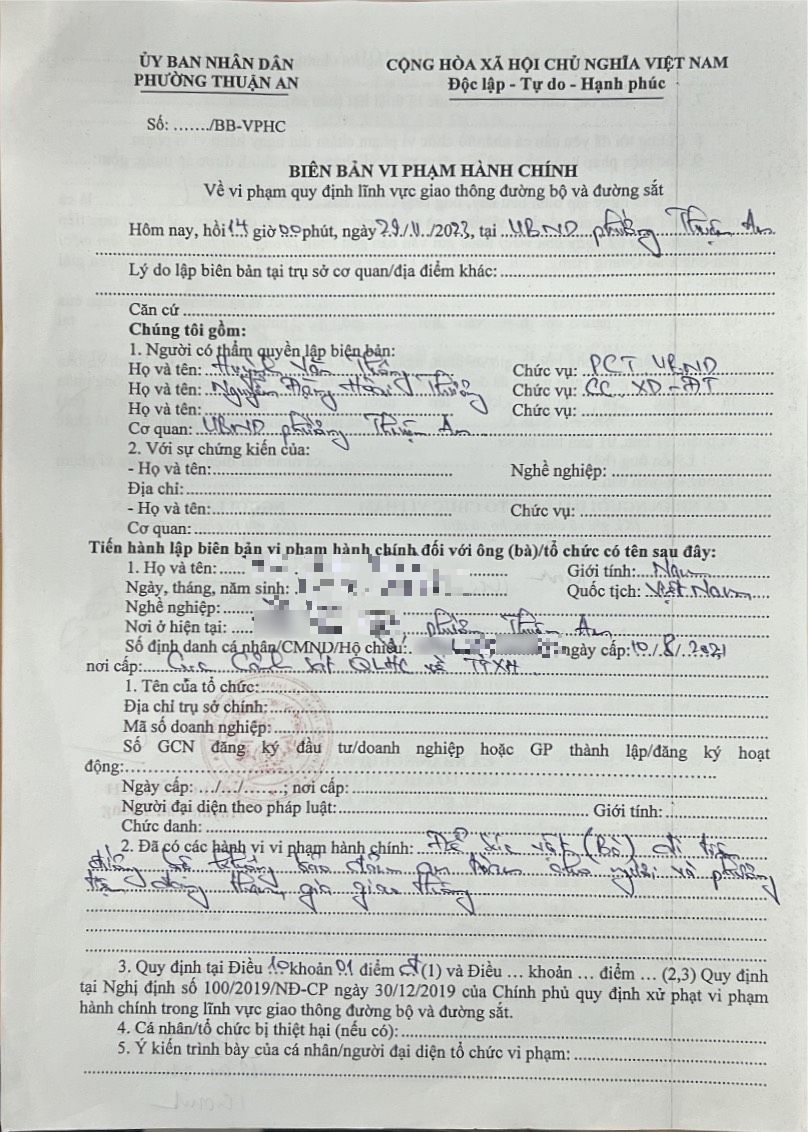 ỦY BAN NHÂN DÂN
PHƯỜNG THUẬN AN
CỘNG HÒA XÃ HỘI CHỦ NGHĨA VIỆT NAM
Độc lập - Tự do - Hạnh phúc
Số: ……./BB-VPHC
BIÊN BẢN VI PHẠM HÀNH CHÍNH
Về vi phạm quy định lĩnh vực giao thông đường bộ và đường sắt
Hôm nay, hồi 14 giờ 00 phút, ngày 29/11/2023, tại UBND phường Thuận An
Lý do lập biên bản tại trụ sở cơ quan/địa điểm khác:
Căn cứ
Chúng tôi gồm:
1. Người có thẩm quyền lập biên bản:
Họ và tên: Huỳnh Văn Chức vụ: PCT UBND
Họ và tên: Nguyễn Đặng Hoài Thương Chức vụ: CC XD-ĐT
Họ và tên: Chức vụ:
Cơ quan: UBND phường Thuận An
2. Với sự chứng kiến của:
- Họ và tên: Nghề nghiệp:
Địa chỉ:
- Họ và tên: Chức vụ:
Cơ quan:
Tiến hành lập biên bản vi phạm hành chính đối với ông (bà)/tổ chức có tên sau đây:
1. Họ và tên: Giới tính: Nam
Ngày, tháng, năm sinh: Quốc tịch: Việt Nam
Nghề nghiệp:
Nơi ở hiện tại: , phường Thuận An
Số định danh cá nhân/CMND/Hộ chiếu: ngày cấp: 10/8/2021
nơi cấp: Cục Cảnh sát QLHC về TTXH
1. Tên của tổ chức:
Địa chỉ trụ sở chính:
Mã số doanh nghiệp:
Số GCN đăng ký đầu tư/doanh nghiệp hoặc GP thành lập/đăng ký hoạt
động:
Ngày cấp: …/…/…….; nơi cấp:
Người đại diện theo pháp luật: Giới tính:
Chức danh:
2. Đã có các hành vi vi phạm hành chính: Để súc vật (Bò) đi trên
đường bộ không bảo đảm an toàn cho người và phương
tiện đang tham gia giao thông
3. Quy định tại Điều 10 khoản 01 điểm (1) và Điều … khoản … điểm … (2,3) Quy định
tại Nghị định số 100/2019/NĐ-CP ngày 30/12/2019 của Chính phủ quy định xử phạt vi phạm
hành chính trong lĩnh vực giao thông đường bộ và đường sắt.
4. Cá nhân/tổ chức bị thiệt hại (nếu có):
5. Ý kiến trình bày của cá nhân/người đại diện tổ chức vi phạm: